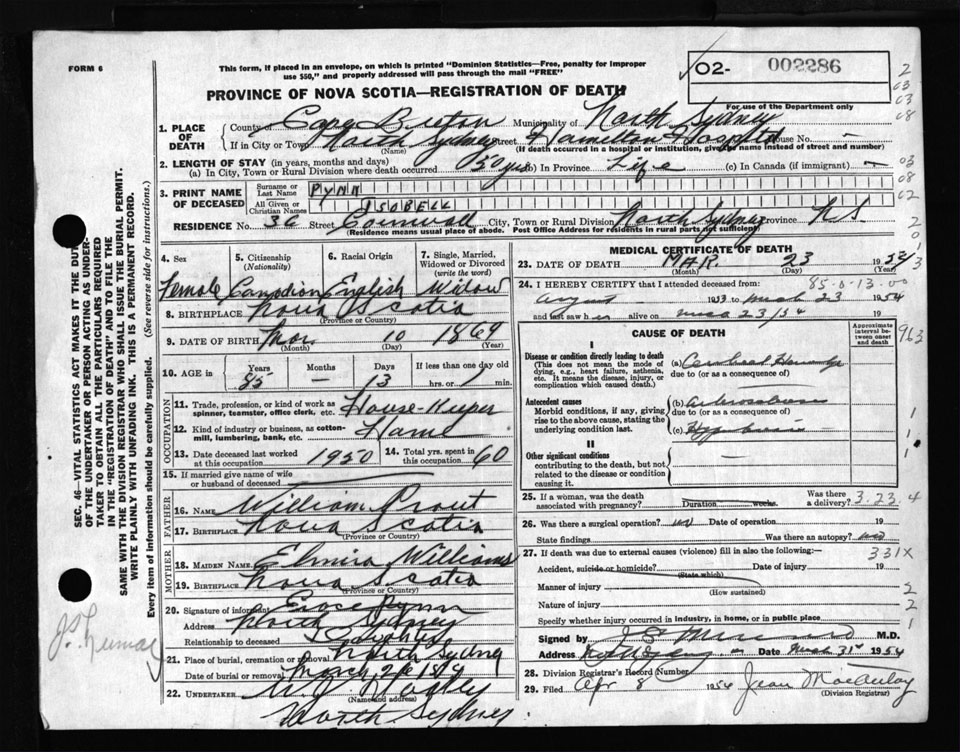 FORM 6
This form, if placed in an envelope, on which is printed "Dominion Statistics—Free, penalty for improper
use $50," and properly addressed will pass through the mail "FREE"
02- 002286
PROVINCE OF NOVA SCOTIA—REGISTRATION OF DEATH
For use of the Department only
1. PLACE OF DEATH
County of Cape Breton Municipality of North Sydney
If in City or Town North Sydney (Name) Street Hamilton Hospital House No. —
(If death occurred in a hospital or institution, give its name instead of street and number)
2. LENGTH OF STAY (in years, months and days)
(a) In City, Town or Rural Division where death occurred 50 yrs (b) In Province Life (c) In Canada (if immigrant) —
3. PRINT NAME OF DECEASED
Surname or Last Name PYNN
All Given or Christian Names ISOBELL
RESIDENCE No. 36 Street Cornwall City, Town or Rural Division North Sydney Province N.S.
(Residence means usual place of abode. Post Office Address for residents in rural parts not sufficient)
4. Sex Female
5. Citizenship (Nationality) Canadian
6. Racial Origin English
7. Single, Married, Widowed or Divorced (write the word) Widow
8. BIRTHPLACE Nova Scotia
(Province or Country)
9. DATE OF BIRTH Mar. 10 1869
(Month) (Day) (Year)
10. AGE in Years 85 Months — Days 13 If less than one day old hrs. or min.
OCCUPATION
11. Trade, profession, or kind of work as spinner, teamster, office clerk, etc. House-Keeper
12. Kind of industry or business, as cotton-mill, lumbering, bank, etc. Home
13. Date deceased last worked at this occupation 1950
14. Total yrs. spent in this occupation 60
15. If married give name of wife or husband of deceased
FATHER
16. NAME William Prout
17. BIRTHPLACE Nova Scotia
(Province or Country)
MOTHER
18. MAIDEN NAME Elmira Williams
19. BIRTHPLACE Nova Scotia
(Province or Country)
20. Signature of informant Pynn
Address North Sydney
Relationship to deceased
21. Place of burial, cremation or removal North Sydney
Date of burial or removal March 26 1954
22. UNDERTAKER
North Sydney
MEDICAL CERTIFICATE OF DEATH
23. DATE OF DEATH MAR. 23 1954
(Month) (Day) (Year)
85-0-13-00
24. I HEREBY CERTIFY that I attended deceased from:
August 1953 to March 23 1954
and last saw her alive on March 23/54
CAUSE OF DEATH
Approximate interval between onset and death
I
Disease or condition directly leading to death
(This does not mean the mode of dying, e.g., heart failure, asthenia, etc. It means the disease, injury, or complication which caused death.)
(a) Cerebral Hemorrhage
due to (or as a consequence of)
Antecedent causes
Morbid conditions, if any, giving rise to the above cause, stating the underlying condition last.
(b)
due to (or as a consequence of)
(c) Hypertension
II
Other significant conditions
contributing to the death, but not related to the disease or condition causing it.
25. If a woman, was the death associated with pregnancy? Duration weeks. Was there a delivery?
3.23.4
26. Was there a surgical operation? no Date of operation 19
State findings Was there an autopsy? no
27. If death was due to external causes (violence) fill in also the following:—
331X
Accident, suicide or homicide? Date of injury 19
(State which)
Manner of injury
(How sustained)
Nature of injury
Specify whether injury occurred in industry, in home, or in public place
Signed by M.D.
Address Date March 31 1954
28. Division Registrar's Record Number
29. Filed Apr 8 1954 Jean MacAulay
(Division Registrar)
SEC. 46—VITAL STATISTICS ACT MAKES IT THE DUTY
OF THE UNDERTAKER OR PERSON ACTING AS UNDER-
TAKER TO OBTAIN ALL THE PARTICULARS REQUIRED
IN THE "REGISTRATION OF DEATH" AND TO FILE THE
SAME WITH THE DIVISION REGISTRAR WHO SHALL ISSUE THE BURIAL PERMIT.
WRITE PLAINLY WITH UNFADING INK. THIS IS A PERMANENT RECORD.
Every item of information should be carefully supplied. (See reverse side for instructions.)